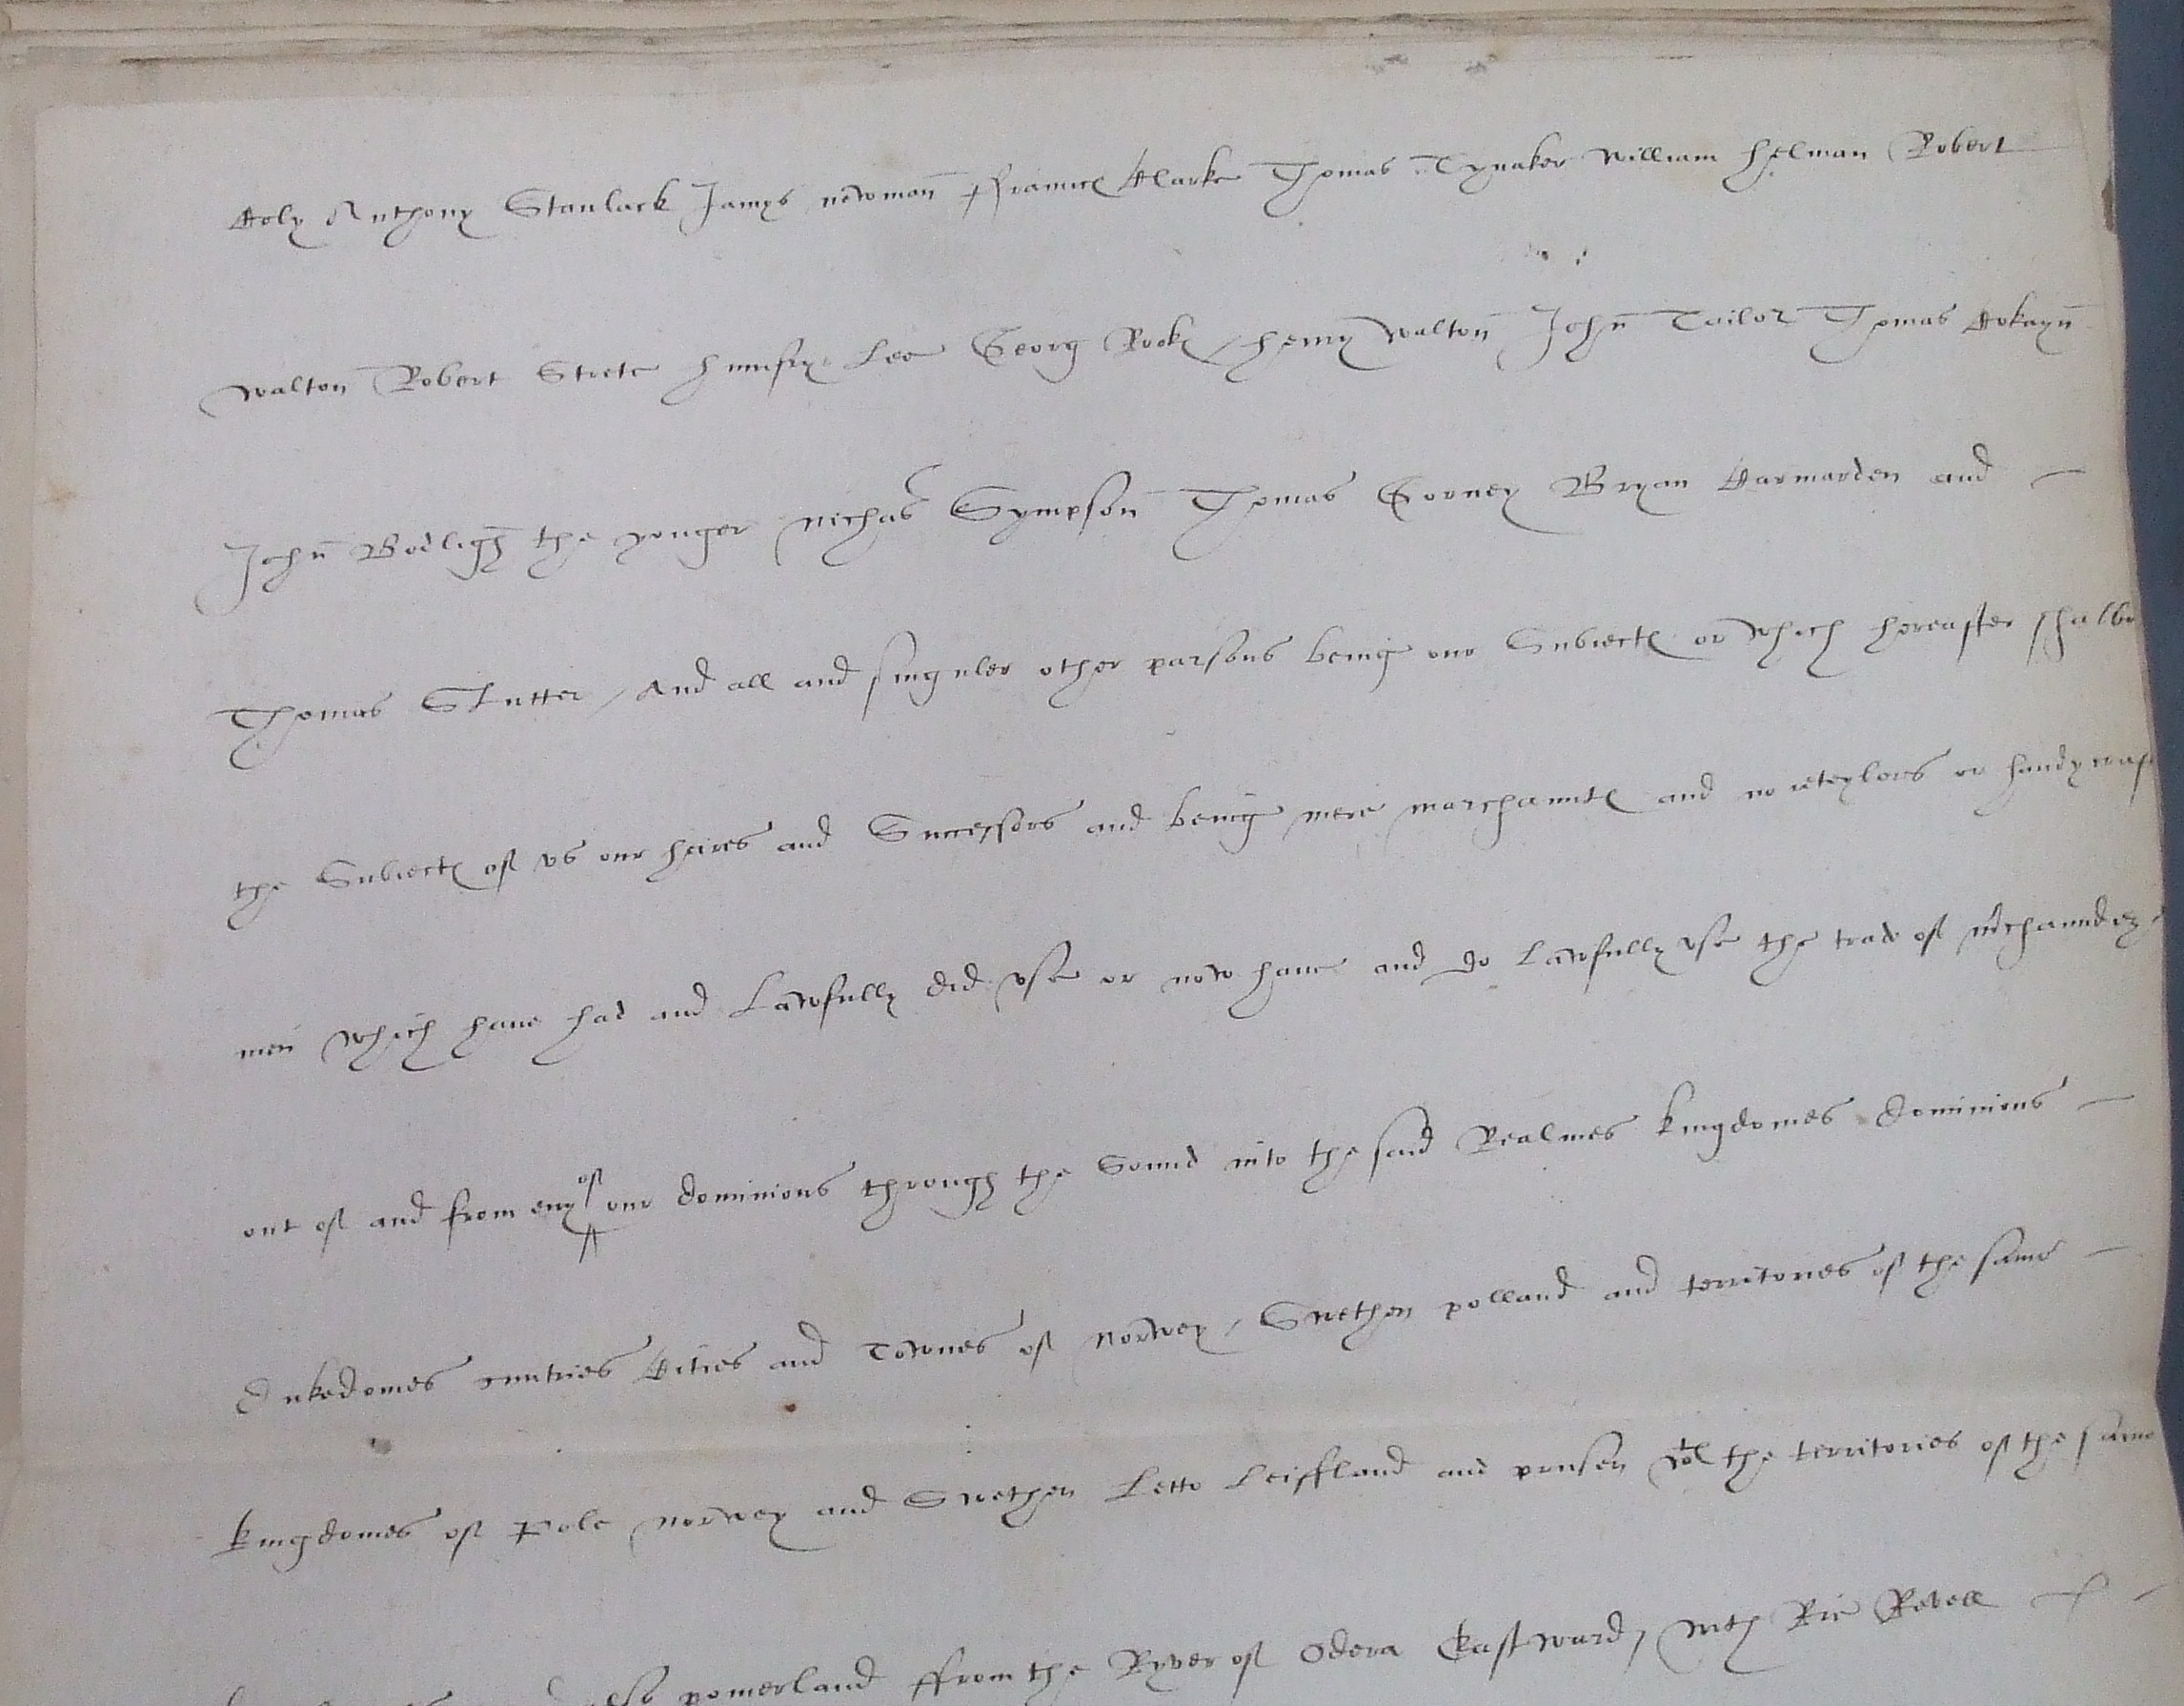 Coly Anthony Stanlack Jamys newman ffrauncs Clarke Thomas Tynaker william helman Robert
walton Robert Strete humfry Lee Georg Rooks / henry walton John Tailor Thomas Cokayn
John Bodligh the yonger Nichas Sympson Thomas Gorney Bryan Carmarden and
Thomas Slutter / And all and singuler other parsons being our Subiects or which hereafter shalbe
the Subiects of vs our heires and Successors and being mere marchaunts and no reteylors or handycraft
men which haue had and Lawfully did vse or now haue and do Lawfully vse the trade of mchaundez
out of and from eny of our dominions through the Sound into the said Realmes kingdomes dominions
Dukedomes cuntries Cities and Townes of Norwey / Swethen polland and territories of the same
kingdomes of Pole norwey and Swethen Letto Leiffland and prusen wt the territories of the same
also pomerland ffrom the Ryver of Odera Eastward, with Rie Revell